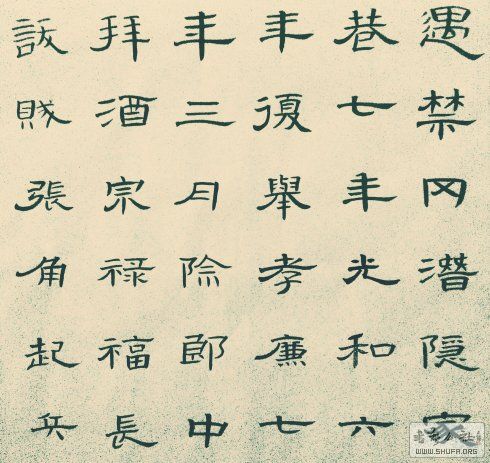 遇禁网潜隱家
巷七年光和六
年復舉孝廉七
年三月除郎中
拜酒宗禄福長
訞賊張角起兵
WWW.SHUFA.ORG